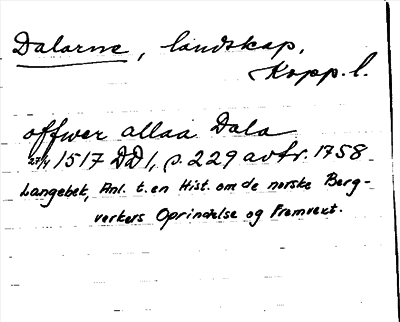 Dalarne, landskap,
Kopp. l.
offwer allaa Dala
27/4 1517 DD 1, s. 229 avtr. 1758
Langebek, Anl. t. en Hist. om de norske Berg-
verkers Oprindelse og Fremvext.